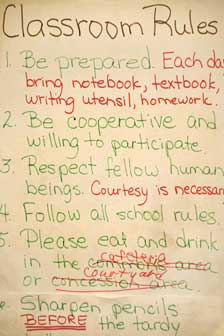 Classroom Rules
1. Be prepared. Each
bring notebook, textbook,
writing utensil, homework.
2. Be cooperative and
willing to participate.
3. Respect fellow human
beings. Courtesy is necessary
4. Follow all school rules.
5. Please eat and drink
cafeteria
in the commons area
Courtyard
or concession area.
Sharpen pencils
BEFORE the tardy